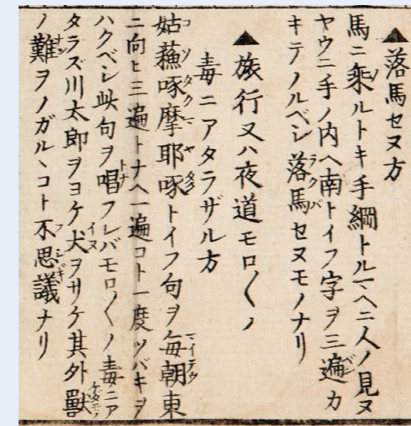 ▲落馬セヌ方
馬ニ乗ルトキ手綱トルマヘニ人ノ見ヌ
ヤウニ手ノ内ヘ南トイフ字ヲ三遍カ
キテノルベシ落馬セヌモノナリ
▲旅行又ハ夜道モロ〱ノ
毒ニアタラザル方
姑蘓啄摩耶啄トイフ句ヲ毎朝東
ニ向ヒ三遍トナヘ一遍コト一度ツバキヲ
ハクベシ此句ヲ唱フレバモロ〱ノ毒ニア
タラズ川太郎ヲヨケ犬ヲサケ其外獸
ノ難ヲノガルヽコト不思議ナリ